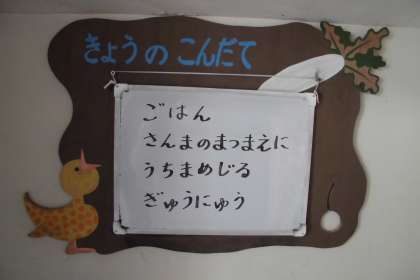 きょうのこんだて
ごはん
さんまのまつまえに
うちまめじる
ぎゅうにゅう